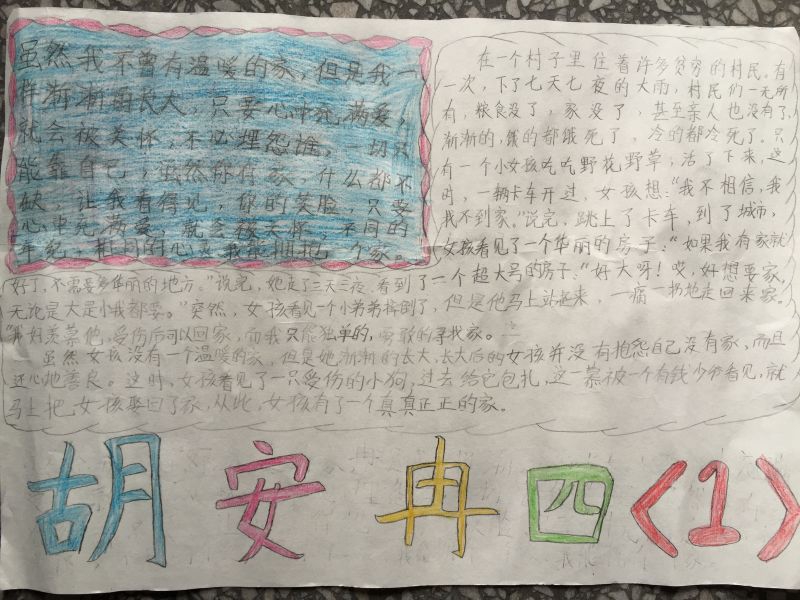 虽然我不曾有温暖的家,但是我一
样渐渐的长大,只要心中充满爱,
就会被关怀,不必埋怨谁,一切只
能靠自己,虽然你有家,什么都不
缺,让我看得见,你的笑脸,只要
心中充满爱,就会被关怀,不同的
年纪,
在一个村子里住着许多贫穷的村民。有
一次,下了七天七夜的大雨,村民们一无所
有,粮食没了,家没了,甚至亲人也没有了,
渐渐的,饿的都饿死了,冷的都冷死了。只
有一个小女孩吃吃野花,野草,活了下来,这
时,一辆卡车开过,女孩想:“我不相信,我
找不到家。”说完,跳上了卡车,到了城市,
女孩看见了一个华丽的房子:“如果我有家就
好了,不需要多华丽的地方。”说完,她走了三天三夜,看到了一个超大号的房子:“好大呀!哎,好想要家,
无论是大是小我都要。”突然,女孩看见一个小弟弟摔倒了,但是他马上站起来,一痛一拐地走回来家。
“我好羡慕他,受伤后可以回家,而我只能独单的,勇敢的寻找家。
虽然女孩没有一个温暖的家,但是她渐渐的长大,长大后的女孩并没有抱怨自己没有家,而且
还心地善良。这时,女孩看见了一只受伤的小狗,过去给它包扎,这一幕被一个有钱少爷看见,就
马上把女孩娶回了家,从此,女孩有了一个真真正正的家。
胡安冉四<1>